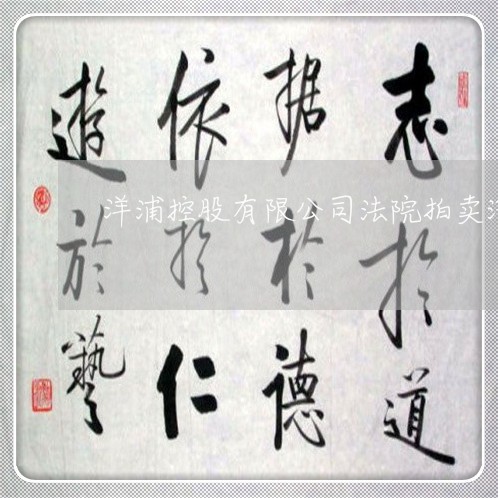 志於道
据於德
依於仁
遊於藝
洋浦控股有限公司法院拍卖